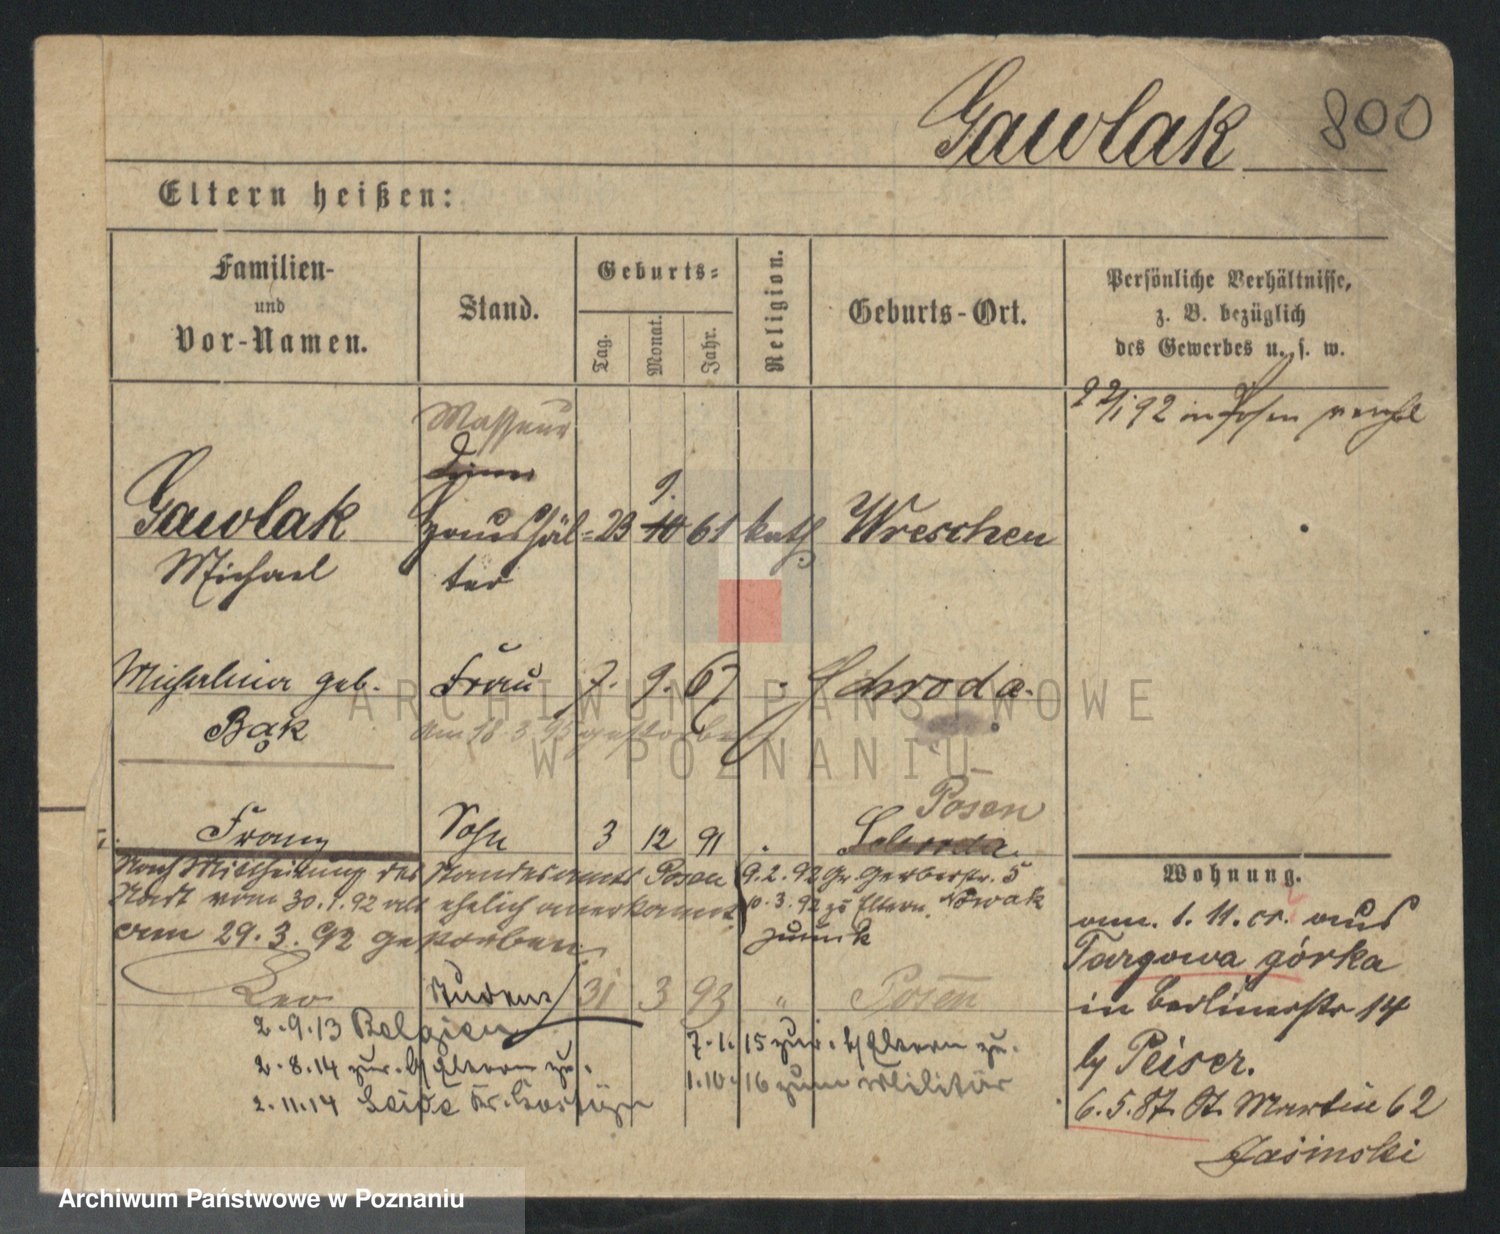 Gawlak 800
Eltern heißen:
Familien-
und
Vor-Namen.
Stand.
Geburts-
Tag.
Monat.
Jahr.
Religion.
Geburts-Ort.
Persönliche Verhältnisse,
z. B. bezüglich
des Gewerbes u. s. w.
22/1 92 in Posen
Masseur
Gawlak Haushäl= 23 10 9. 61 kath Wreschen
Michael ter
Michalina geb. Frau 7. 9. 67 . Schroda.
Bąk am 18 3 95 gestorben
Posen
Franz Sohn 3 12 91 . Schroda.
Nach Mittheilung des Standesamts Posen
Stadt vom 30.1.92 als ehelich anerkannt.
am 29. 3. 92 gestorben.
9.2.92 Gr. Gerberstr. 5
10.3.92 zu Eltern Nowak
zurück
Leo Student 31 3 93 " Posen
2.9.13 Belgien
2.8.14 zur. b/ Eltern zu.
2.11.14 Kr.
7.1.15 zur. b/ Eltern zu.
1.10.16 zum Militär
Wohnung.
am. 1. 11. cr. aus
Targowa górka
in Berlinerstr 14
b/ Peiser.
6.5.87. St. Martin 62
Jasinski
ARCHIWUM PAŃSTWOWE
W POZNANIU
Archiwum Państwowe w Poznaniu